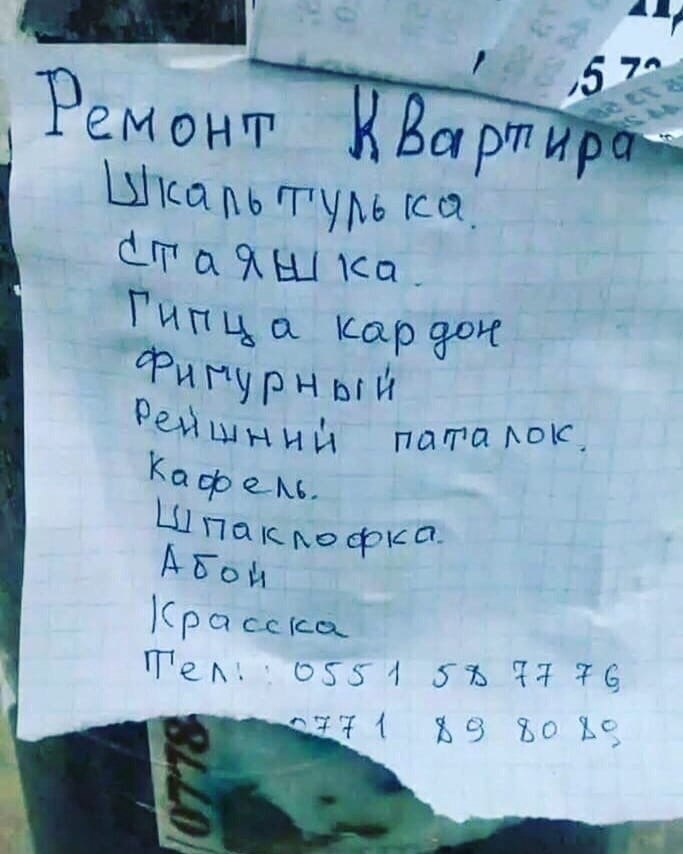 5 72
Ремонт Квартира
Шкальтулька.
стаяшка.
Гипца кардон
Фимурный
Рейшний паталок.
Кафель.
Шпаклофка.
Абой
Красска
Тел: 0551 58 77 76
0771 89 80 89
0778